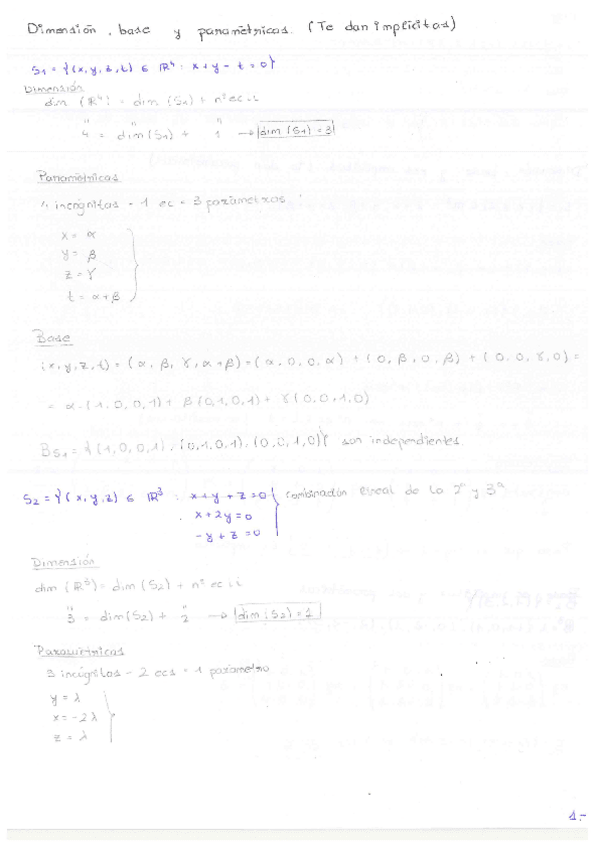 Dimensión, base y paramétricas. (Te dan implícitas)
S1 = {(x,y,z,t) ∈ ℝ⁴ : x+y-t=0}
Dimensión
dim (ℝ⁴) = dim (S1) + nº ec ii
4 = dim(S1) + 1 → dim (S1) = 3
Paramétricas
4 incógnitas - 1 ec = 3 parámetros
x = α
y = β
z = γ
t = α+β
Base
(x,y,z,t) = (α, β, γ, α+β) = (α,0,0,α) + (0,β,0,β) + (0,0,γ,0) =
= α·(1,0,0,1) + β(0,1,0,1) + γ(0,0,1,0)
B_S1 = {(1,0,0,1), (0,1,0,1), (0,0,1,0)} son independientes.
S2 = {(x,y,z) ∈ ℝ³ : x+y+z=0} combinación lineal de la 2ª y 3ª
x+2y=0
-y+z=0
Dimensión
dim (ℝ³) = dim (S2) + nº ec ii
3 = dim(S2) + 2 → dim (S2) = 1
Paramétricas
3 incógnitas - 2 ecs = 1 parámetro
y = λ
x = -2λ
z = λ
1.-